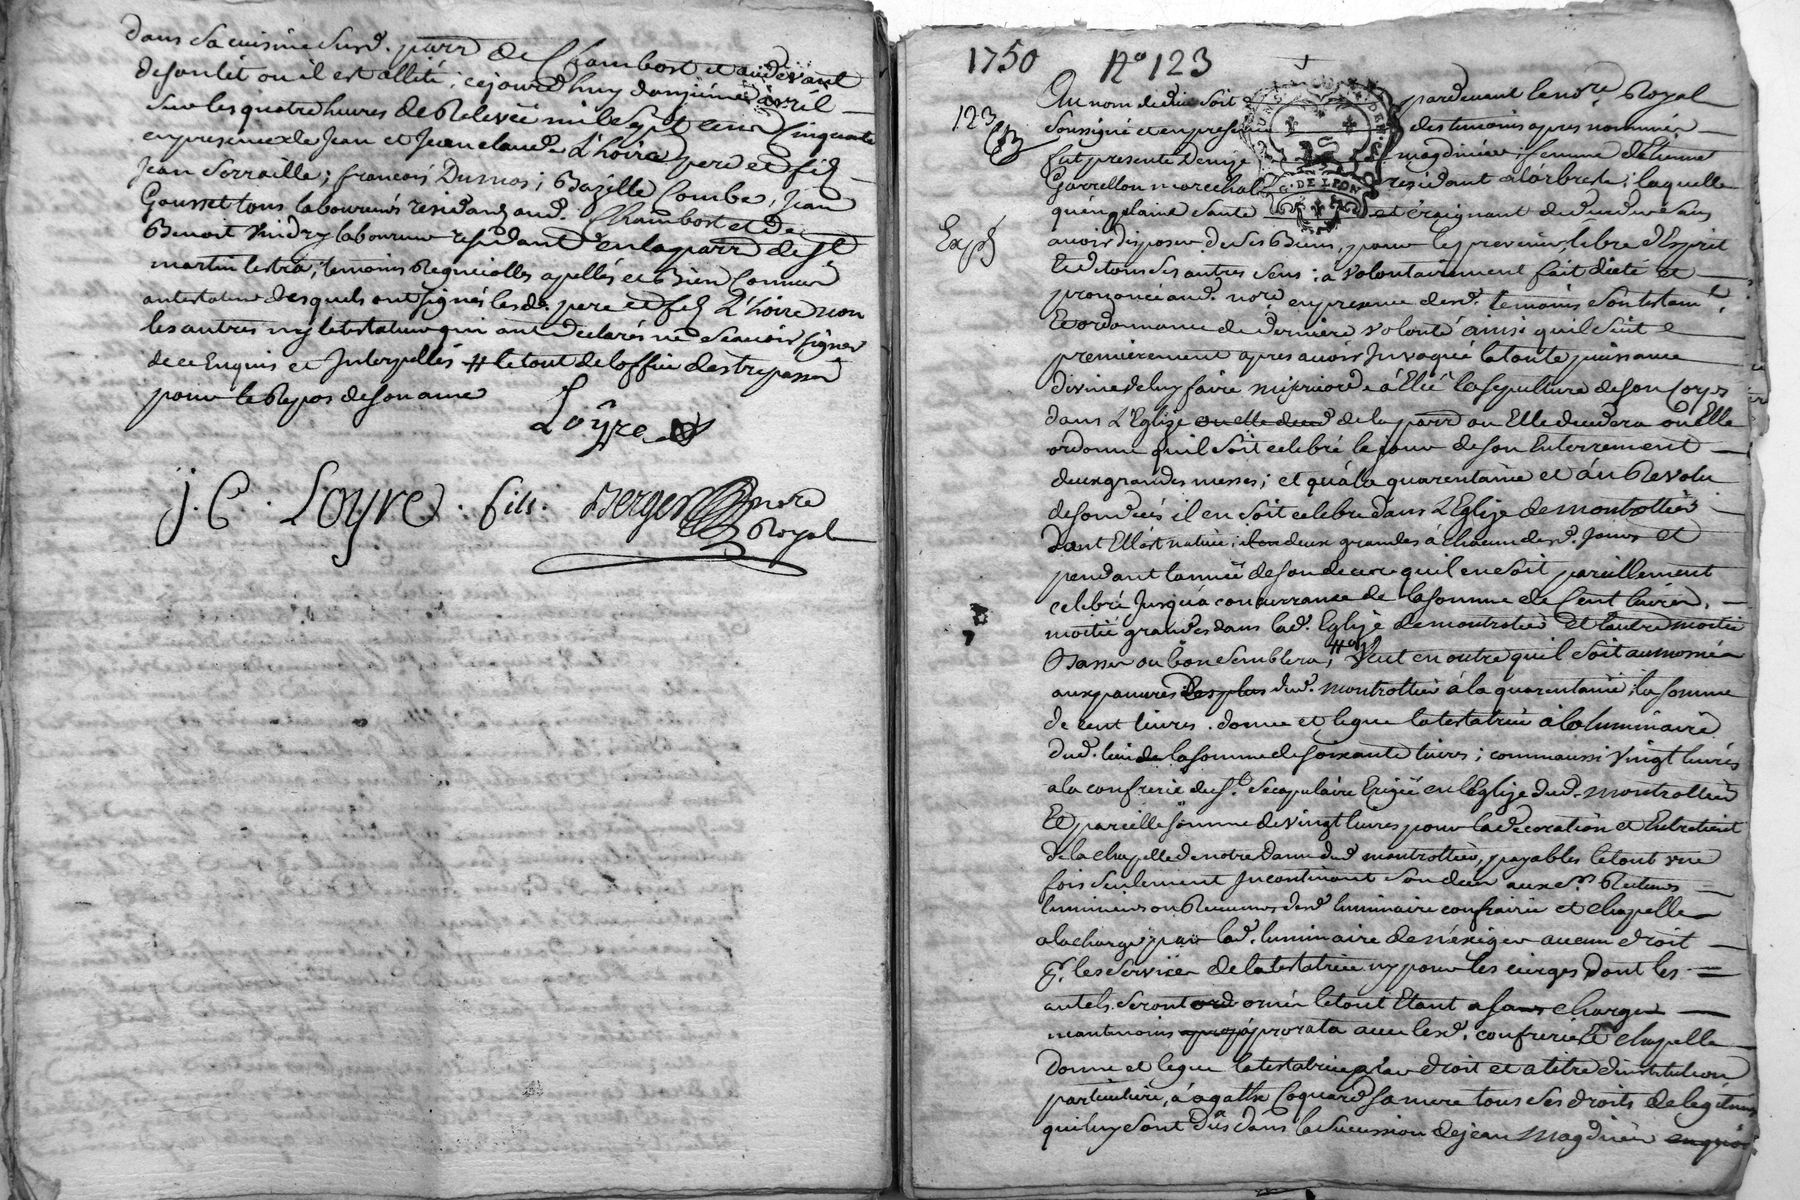 dans sa cuisine susd. parr de Chambost et audevant
de son lit ou il est allité; cejourdhuy douzieme avril
sur les quatre heures de Relevée mil sept cent cinquante
en presence de Jean et Jean claude L'hoire pere et fils
Jean Sorraille; francois Dumas; Bazille Combe, Jean
Gousset tous laboureurs residants aud. Chambost et de
Benoit Vindry laboureur residant en la parr de St
martin lestra, temoins Requis appellés et Bien Connus
au testateur desquels ont signé lesd. pere et fils L'hoire non
les autres ny le testateur qui ont declarés ne scavoir signer
de ce Enquis et Interpellés # le tout de l'office des trepassés
pour le Repos de son ame
Loÿre
J. C. Loyre. fils. Berger nore
Royal
1750 No 123
123
Au nom de dieu soit pardevant le nore Royal
soussigné et en presence des temoins apres nommés
fut presente Denize magdinier femme d'Etienne
G. DE LYON
Garrellon marechal residant a larbresle; laquelle
quoique saine et craignant de deceder sans
Expé
avoir disposer de ses Biens, pour les prevenir, libre d'Esprit
Et de tous ses autres sens: a volontairement fait dicté et
prononcé aud. nore en presence desd. temoins son testamt
Et ordonnance de derniere volonté ainsi quil suit
premierement apres avoir Invoqué la toute puissance
divine de luy faire misericorde a Elû la sepulture de son Corps
dans L'Eglize ou elle deced de la parr ou Elle decedera ou Elle
ordonne quil soit celebré le jour de son Enterrement
deux grandes messes; et qu'a la quarentaine et au Revolu
de son decés il en soit celebré dans L'Eglize de montrottier
Dont Elle est native; deux grandes a chacun desd. Jours et
pendant lannée de son deces quil en soit pareillement
celebré Jusqu'a concurrance de la somme de Cent livres,
moitié grandes dans lad. Eglize de montrotier et l'autre moitié
Basses ou bon semblera; Veut en outre quil soit aumoné
aux pauvres des plus dud. montrottier a la quarentaine la somme
de cent livres. donne et legue la testatrice a la luminaire
dud. lieu de la somme de soixante livres; comme aussi vingt livres
a la confrerie du St Scapulaire Erigée en l'Eglize dud. montrottier
Et pareille somme de vingt livres pour la decoration et Entretient
de la chapelle de notre Dame dud montrottier, payables le tout une
fois seulement Incontinant son deces aux Srs Recteurs
lumineurs ou Receveurs desd luminaire confrairie et chapelle
a la charge par lad. luminaire de n'exiger aucun droit
pr. les services de la testatrice ny pour les cierges dont les
autels seront ord ornés le tout Etant a sans charge
neantmoins au prorata avec lesd. confrerie Et chapelle
Donne et legue la testatrice par droit et a titre d'institution
particuliere, a agathe Coquard sa mere tous ses droits de legitime
qui luy sont dûs dans la succession de jean Magdinier